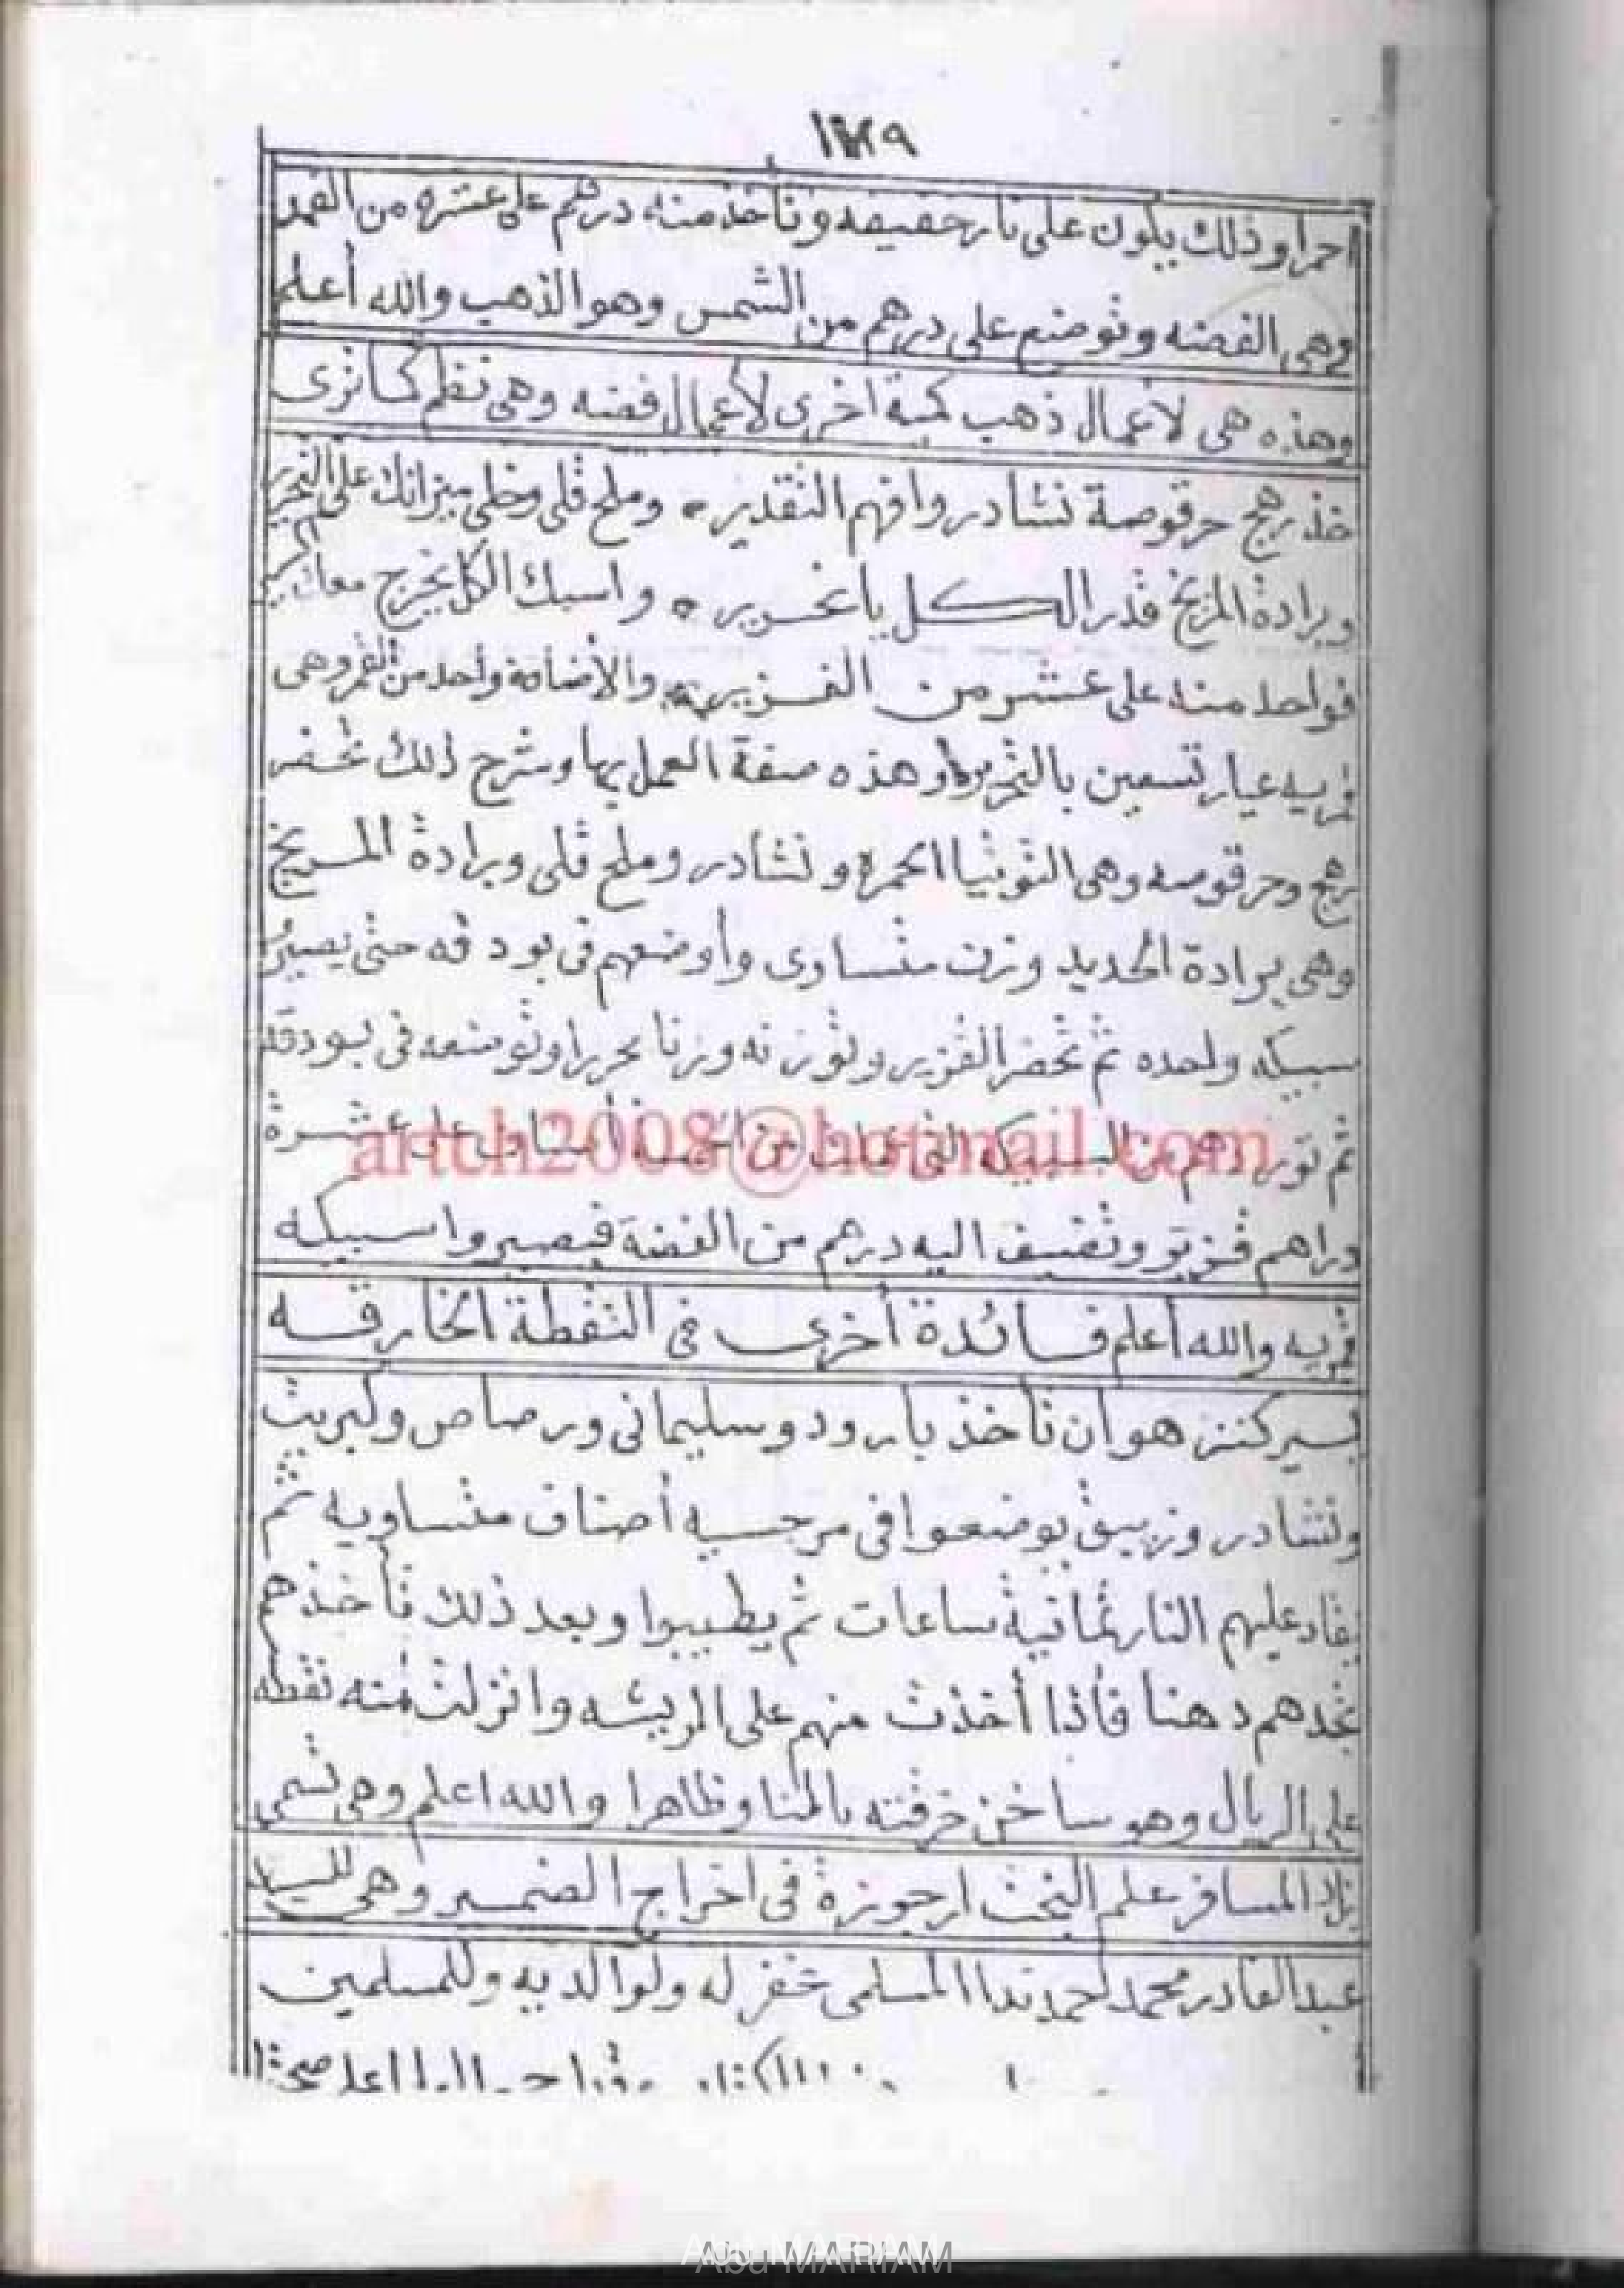 ١٧٩
احمرا وذلك يكون على نار خفيفه وتأخذ منه درهم على عشره من القمر
وهى الفضه وتوضع على درهم من الشمس وهو الذهب والله أعلم
وهذه هى لأعمال ذهب كمية اخرى لأعمال فضه وهى نظم كما نرى
خذ رهج حرقوصة نشادر وافهم التقدير • وملح قلى وخلى ميزانك على التحرير
وبرادة المريخ قدر الكل يا نحرير • واسبك الكل يخرج معاك
فواحد منه على عشر من القزير والأضافة واحد من القمر وهى
قمريه عيار تسعين بالتحرير وهذه صفة العمل بها وشرح ذلك تحضر
رهج وحرقوصه وهى التوتيا الحمره ونشادر وملح قلى وبرادة المريخ
وهى برادة الحديد وزن متساوى وأوضعهم فى بودقه حتى يصير
سبيكه واحده ثم تحضر القزير وتوزنه وزنا محررا وتوضعه فى بودقه
ثم توزن درهم من السبيكه التى على عشرة
artch2008@hotmail.com
دراهم قزير وتضيف اليه درهم من الفضة فيصيروا سبيكه
قمريه والله أعلم فائدة أخرى فى النقطة الخارقه
بسير كنز هو أن تأخذ بارود وسليمانى ورصاص وكبريت
ونشادر وزيبق يوضعوا فى مرجسيه أصناف متساويه ثم
يقاد عليهم النار ثمانية ساعات ثم يطيبوا وبعد ذلك تأخذهم
تجدهم دهنا فأذا أخذت منهم على الريشه وانزلت منه نقطه
على الريال وهو ساخن خرقته بالمنا وظاهرا والله اعلم وهى تسمى
زاد المسافر علم البخت ارجوزة فى اخراج الضمير وهى للسيد
عبد القادر محمد أحمد ندا المسلمى غفر له ولوالديه وللمسلمين
Abu MARIAM